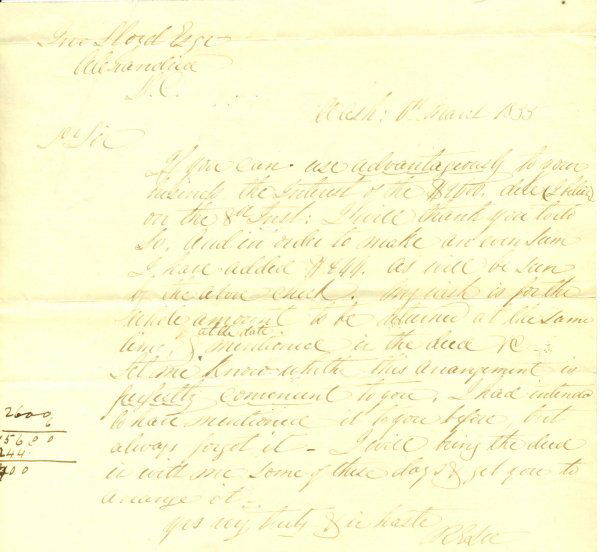 Jno Lloyd Esqr
Alexandria
D. C.
Wash: 6th March 1833
Dr Sir
If you can use advantageously to your
business the Interest of the due
on the 8th Inst: I will thank you to do
So. And in order to make an even sum
I have added $844. as will be seen
by the above check. My wish is for the
whole amount to be returned at the same
time, & at the date mentioned in the deed &c
Let me know whether this arrangement is
perfectly convenient to you. I had intended
to have mentioned it to you before but
always forgot it - I will bring the deed
in with me some of these days & get you to
arrange it -
Yrs very truly & in haste
R E Lee
2600
6
15600
244